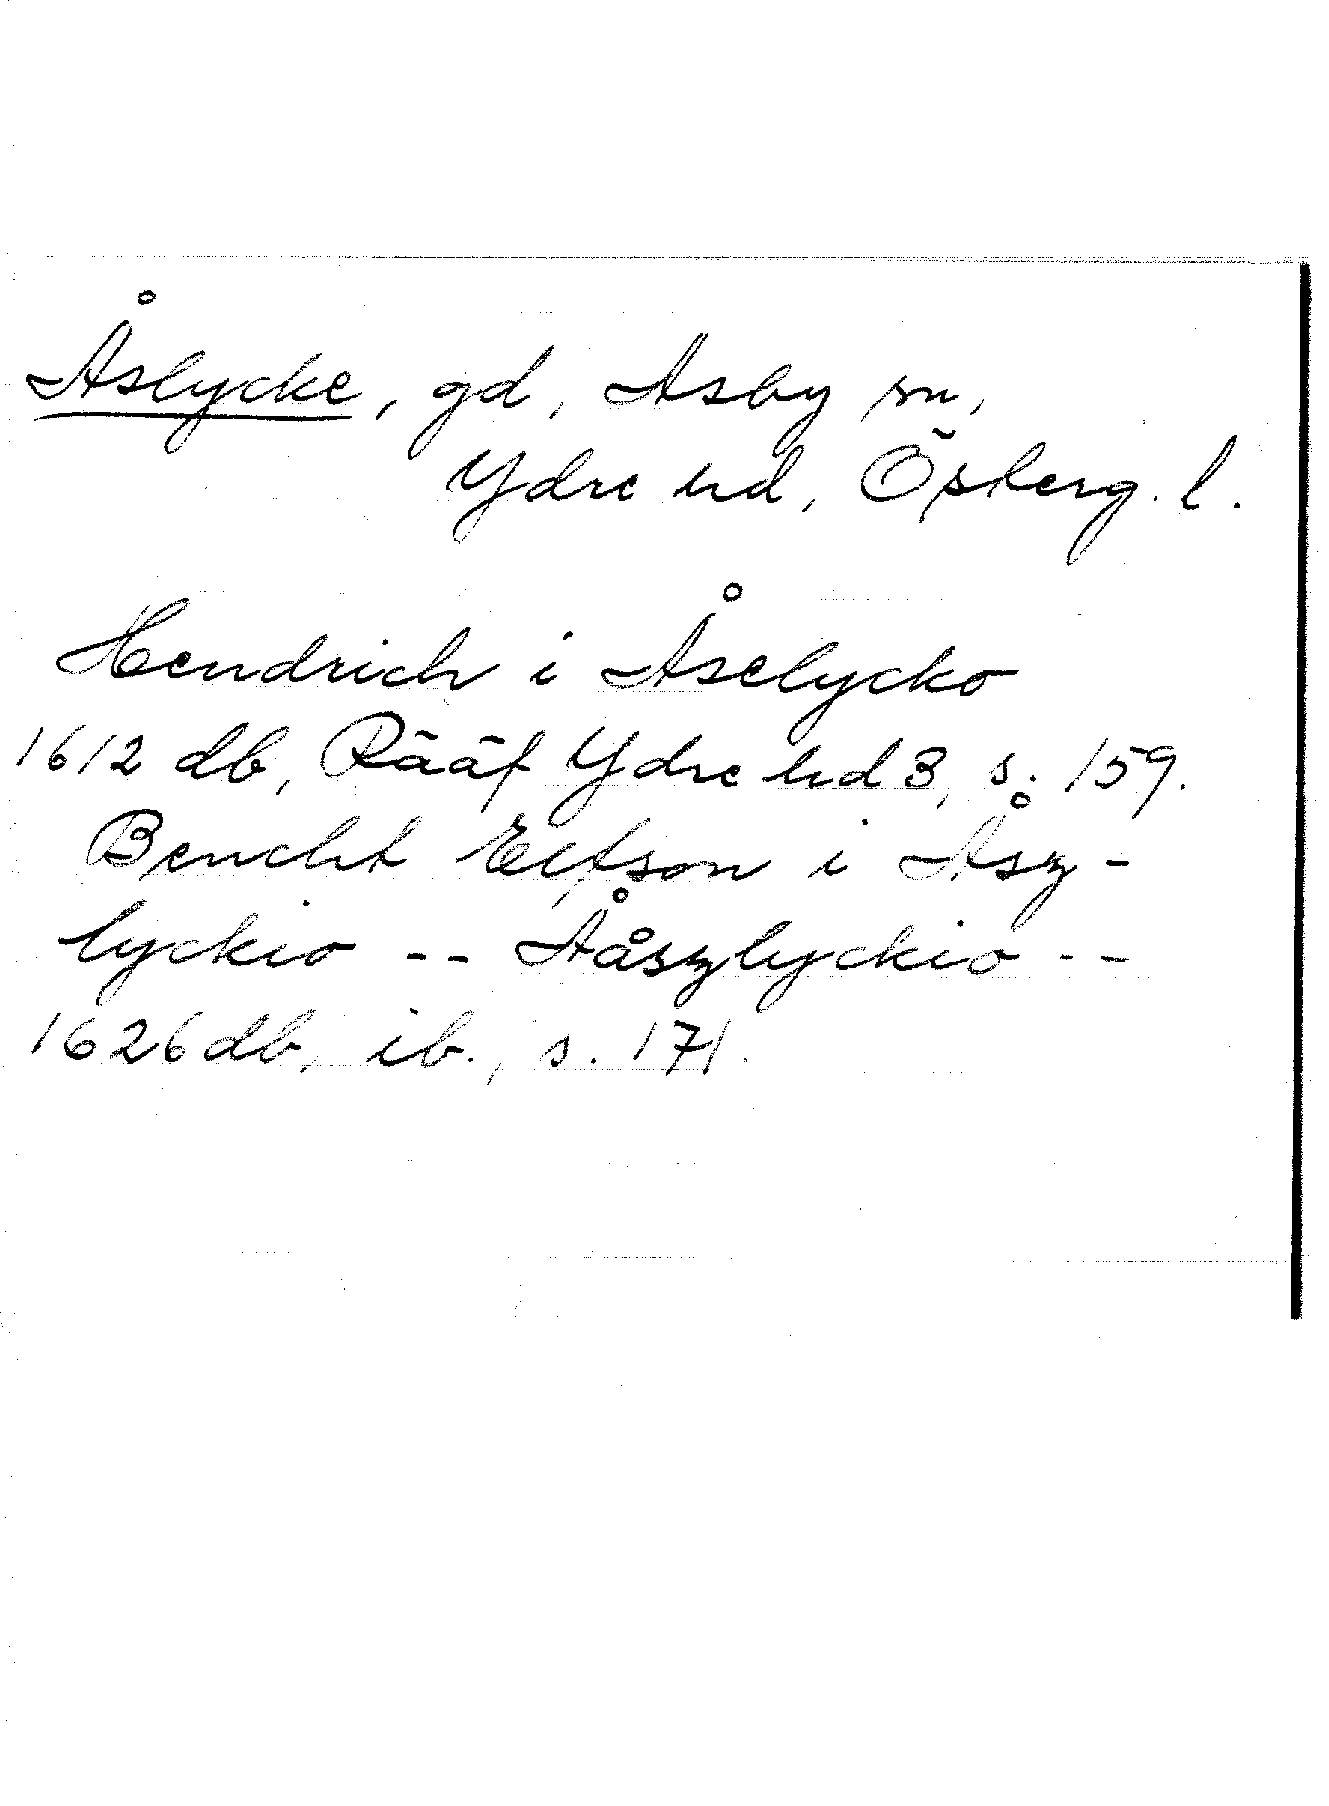 Åslycke, gd, Asby sn,
Ydre hd, Österg. l.
Hendrich i Åselycko
1612 db, Rääf Ydre hd 3, s. 159.
Bencht Elfson i Åsz-
lyckio -- Ååszlyckio --
1626 db, ib., s. 171.